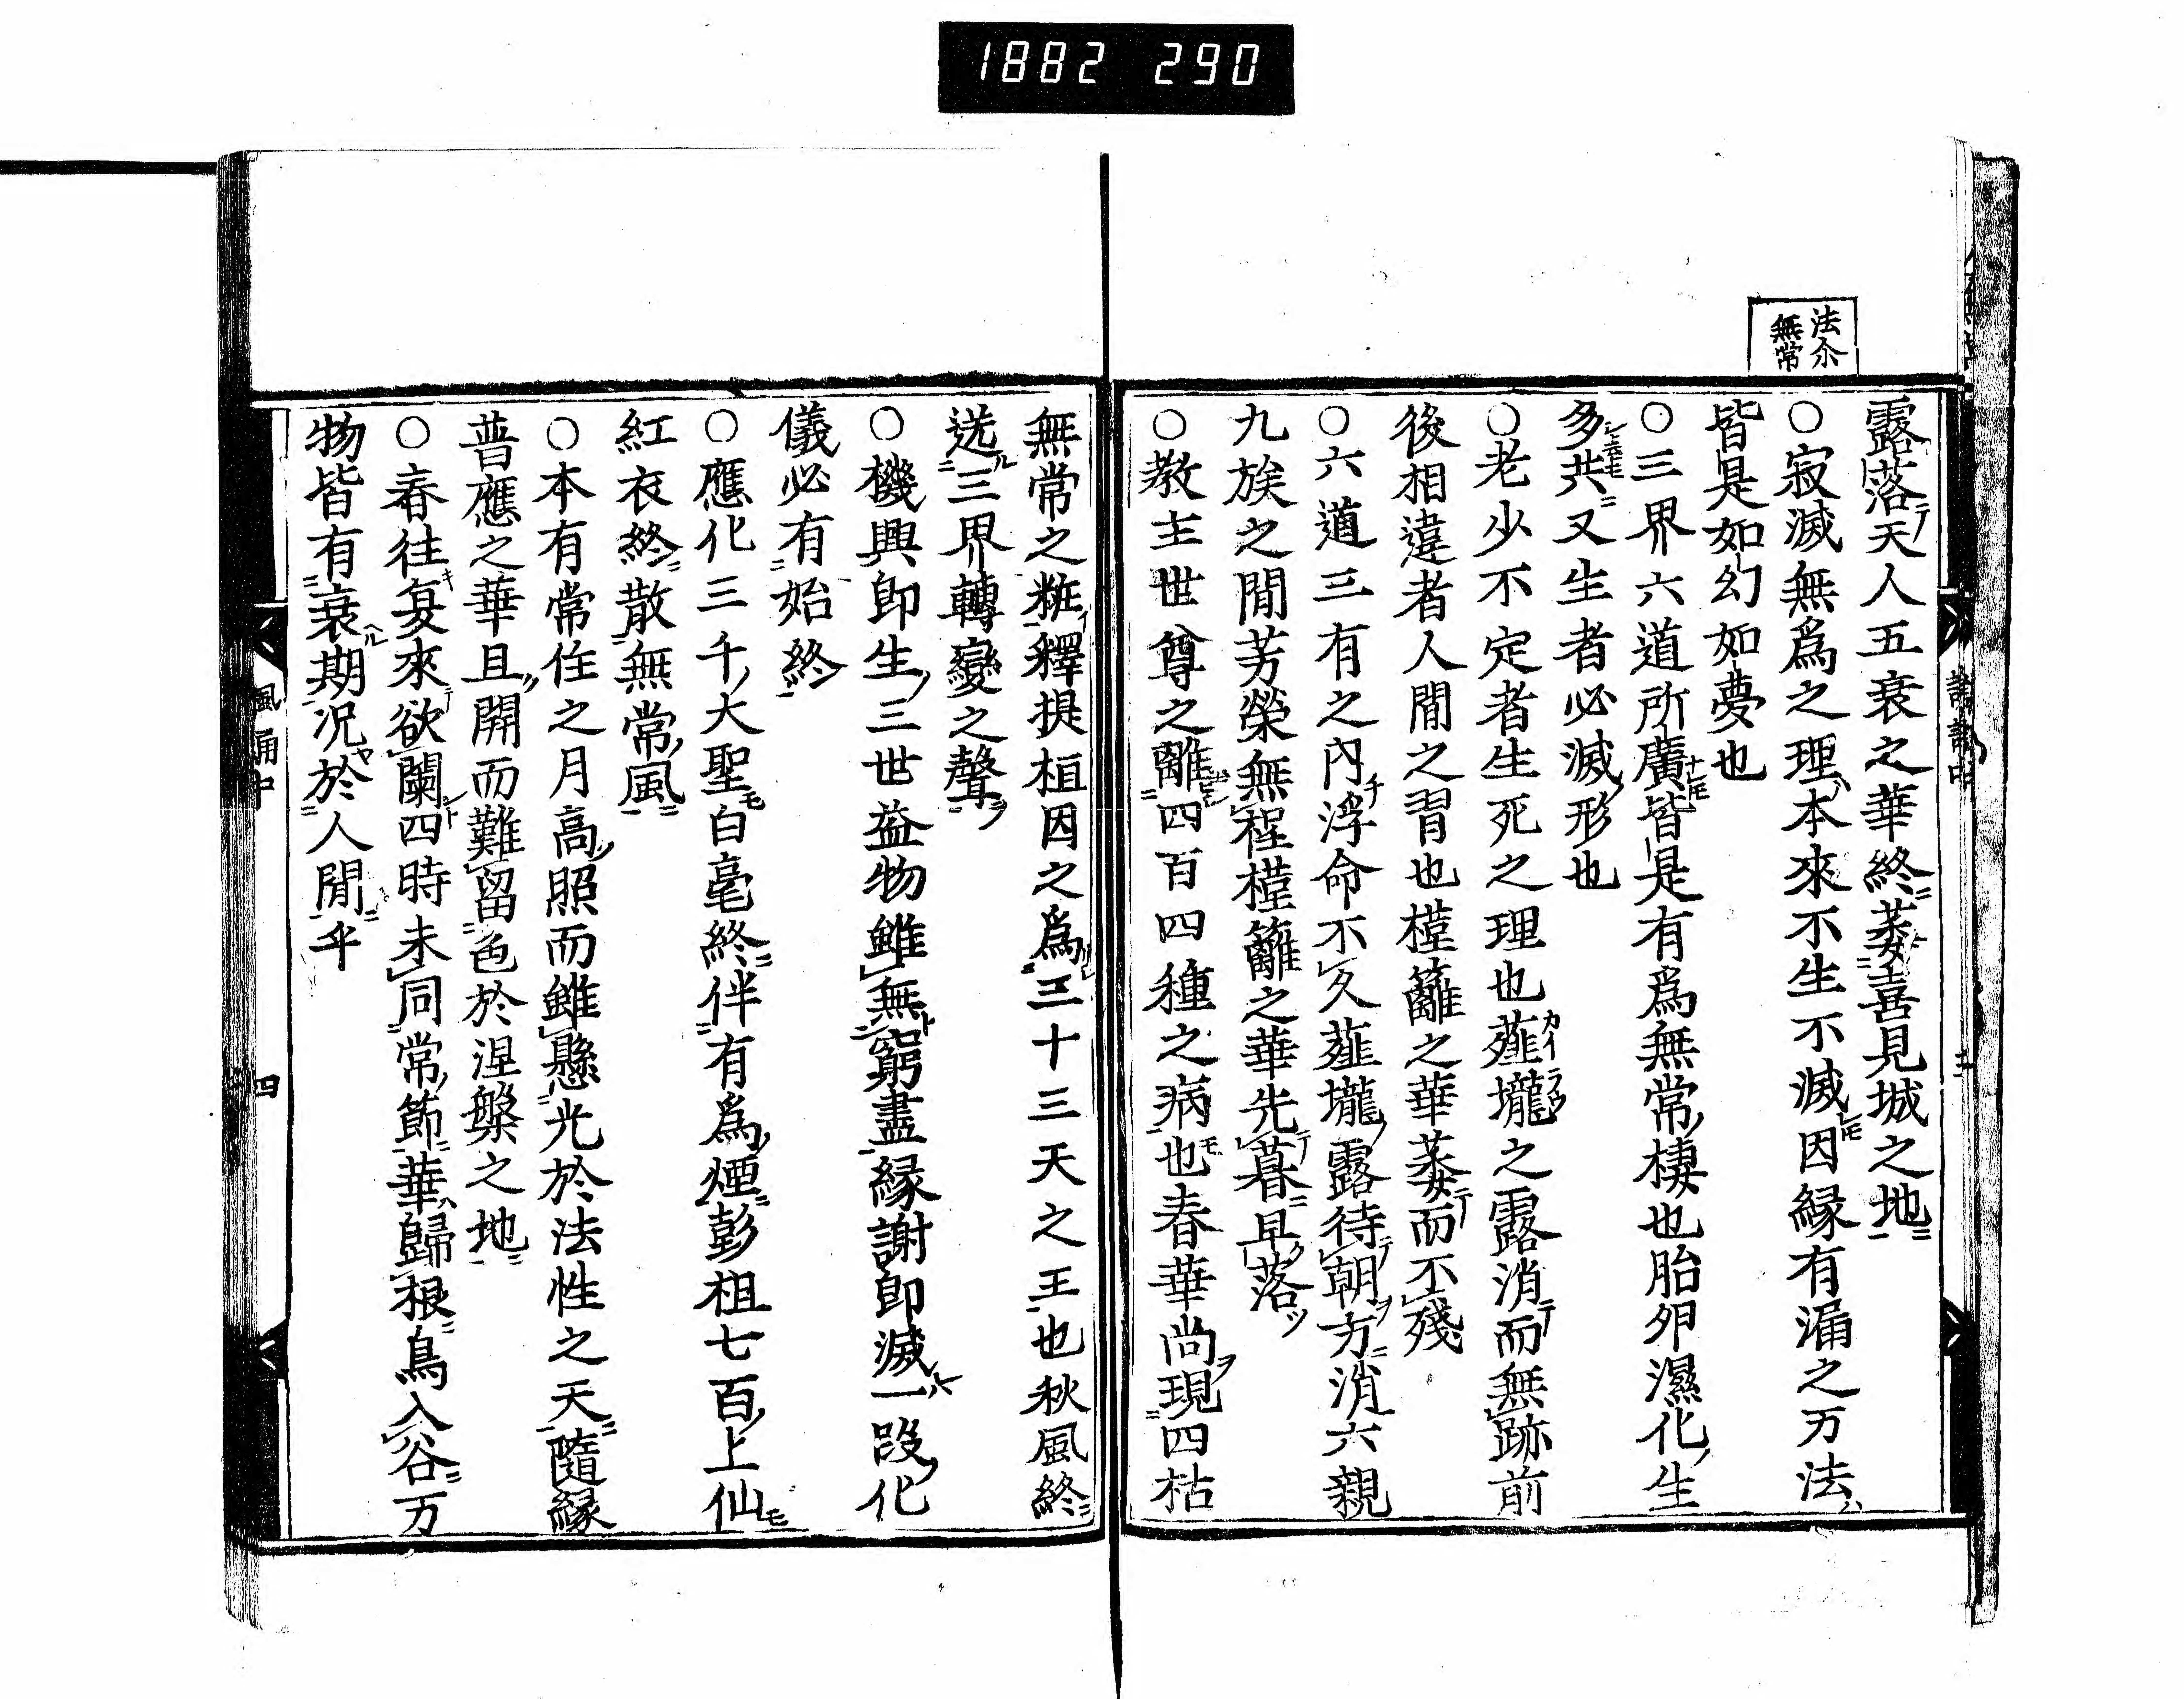 1882 290
法尒
無常
露落天人五衰之華終萎喜見城之地
○寂滅無爲之理本來不生不滅因縁有漏之万法
皆是如幻如夢也
○三界六道所廣皆是有爲無常棲也胎卵濕化生
多共又生者必滅形也
○老少不定者生死之理也薤壠之露消而無跡前
後相違者人間之習也槿籬之華萎而不殘
○六道三有之内浮命不久薤壠露待朝方消六親
九族之間芳榮無程槿籬之華先暮早落
○教主世尊之離四百四種之病也春華尚現四枯
無常之粧釋提桓因之爲三十三天之王也秋風終
送三界轉變之聲
○機興即生三世益物雖無窮盡縁謝即滅一段化
儀必有始終
○應化三千大聖白毫終伴有爲煙彭祖七百上仙
紅衣終散無常風
○本有常住之月高照而雖懸光於法性之天隨縁
普應之華且開而難留色於涅槃之地
○春往夏來欲闌四時未同常節華歸根鳥入谷万
物皆有衰期况於人間乎
風誦中
四